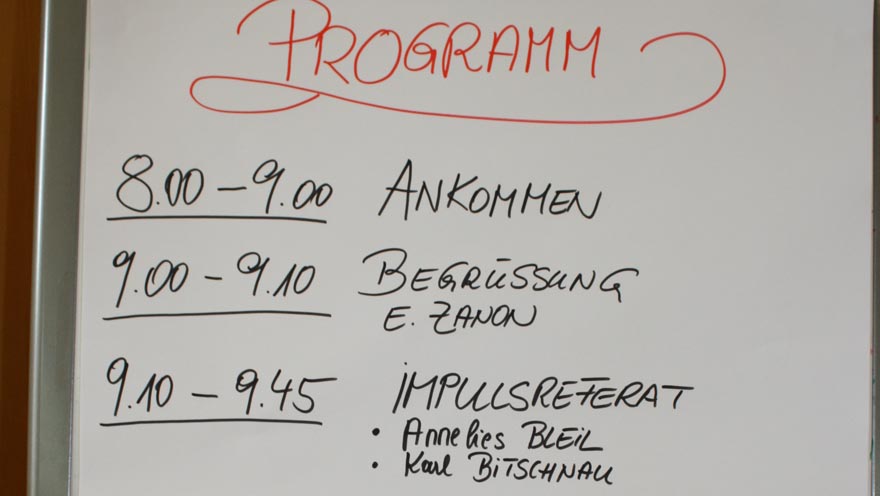 PROGRAMM
8.00 - 9.00 ANKOMMEN
9.00 - 9.10 BEGRÜSSUNG
E. ZANON
9.10 - 9.45 IMPULSREFERAT
• Annelies BLEIL
• Karl BITSCHNAU